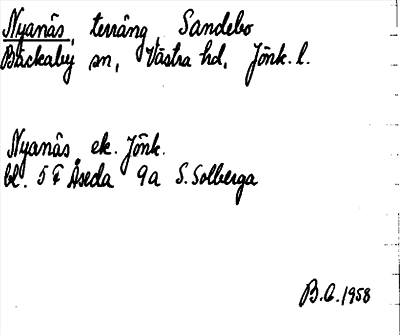 Nyanäs, terräng, Sandebo
Bäckaby sn, Västra hd, Jönk. l.
Nyanäs ek. Jönk.
bl. 5 F Åseda 9a S. Solberga
B.G. 1958